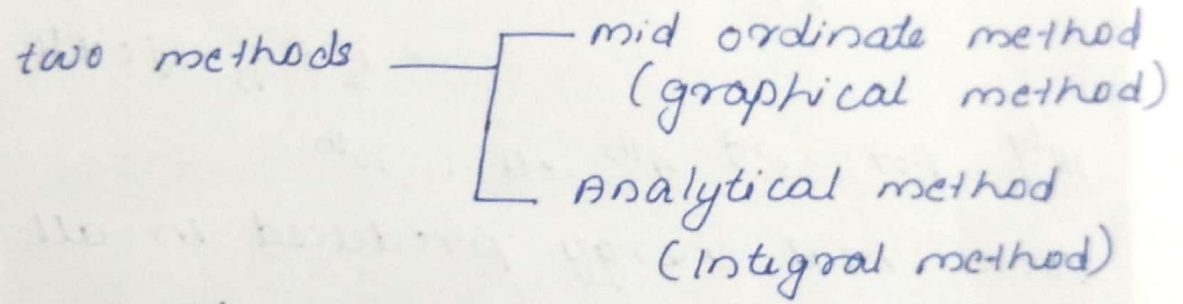 two methods
mid ordinate method
(graphical method)
Analytical method
(Integral method)